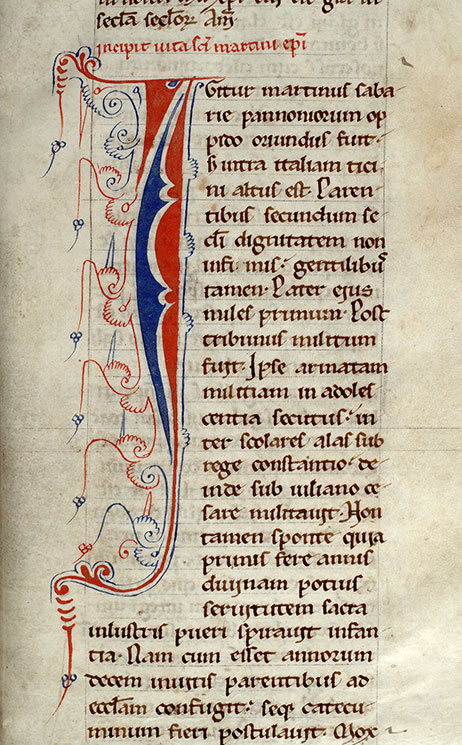 secla seclor Am
incipit vita sci martini epi
Igitur martinus saba
rie pannoniorum op
pido oriundus fuit·
s; intra italiam tici
ni altus est· Paren
tibus secundum se
cli dignitatem non
infimis· gentilibus
tamen· Pater ejus
miles primum· Post
tribunus militum
fuit· Ipse armatam
militiam in adoles
centia secutus· in
ter scolares alas sub
rege constantio· de
inde sub iuliano ce
sare militavit· Non
tamen sponte quia
primis fere annis
divinam potius
servitutem sacra
inlustris pueri spiravit infan
tia· Nam cum esset annorum
decem invitis parentibus ad
ecclam confugit· seq; catecu
minum fieri postulavit· Mox